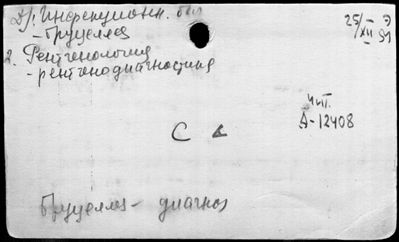 Д/: Инфекционн. бол
- Бруцеллез
2. Рентгенология
- рентгенодиагностика
25/XII 51
Чит.
А-12408
С
Бруцеллез - диагноз